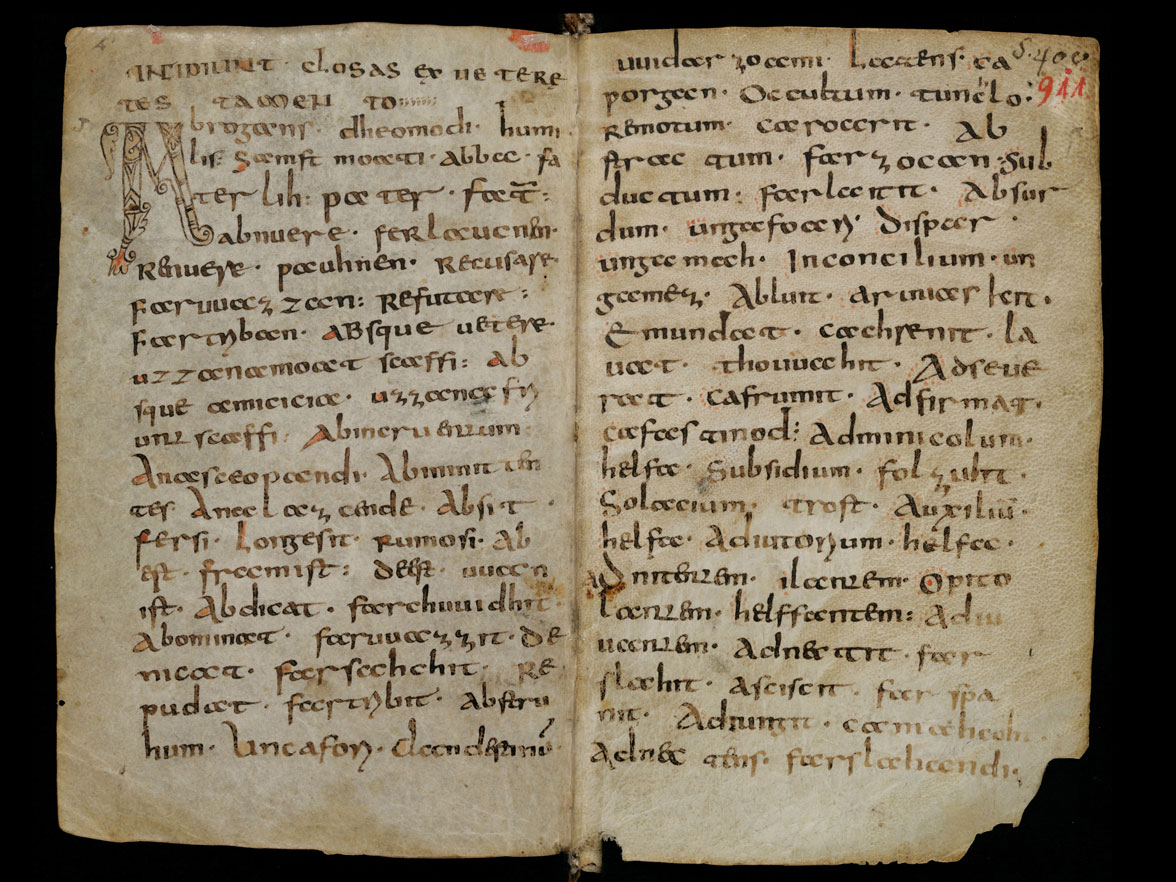 INCIPIUNT · CLOSAS EX UETERE
TES TAMEN TO
brogans · dheomodi · humi
lis: samft moati · Abba · fa
ter lih: pater · fat̄:
abnuere · ferlaucnen·
Renuere · pauhnen · Recusare·
Faruuazzan: Refutare:
Fartriban · ABsque uetere·
uzzanamoat scaffi: ab
sque amicicia · uzzana fri
unt scaffi: Abincruentum·
Anasleopandi · Abinnitien
tes Anaslazcende · Absit ·
fersi · Longe sit · rumo si · Ab
est · fram ist: deest · uuan
ist · Abdicat · farchuuidhit·
Abominat · faruuazzit · de
nicat · farsahchit · Re
pudat · fartribit · Abstru
hum · Uncafori · Clandestinū·
uuidar zoami · Latens · ca
porgan · Occultum · tunclo:
Remotum · carocrit · Ab
strac tum · farzocan · Sub
ductum: farlaitit · Absur
dum · ungafoari · Dispar ·
ungamah · Inconcilium · un
gamez · Abluit · aruuaskit ·
Emundat · cahrenit · la
uat · thouuahit · Adseue
rat · cafrumit · Adfirmat ·
cafastinod: Adminicolum·
helfa · Subsidium · folzuht ·
Solacium · trost · Auxiliū·
helfa · Adiutorium · helfa ·
Adnitentem · ilantem · Opito
lantem · helffantem: Adiu
uantem · Adnectit · far
slahit · Asciscit · farspa
nit · Adiungit · camahhoh
Adnec tens · farslahandi·
S. 400
911